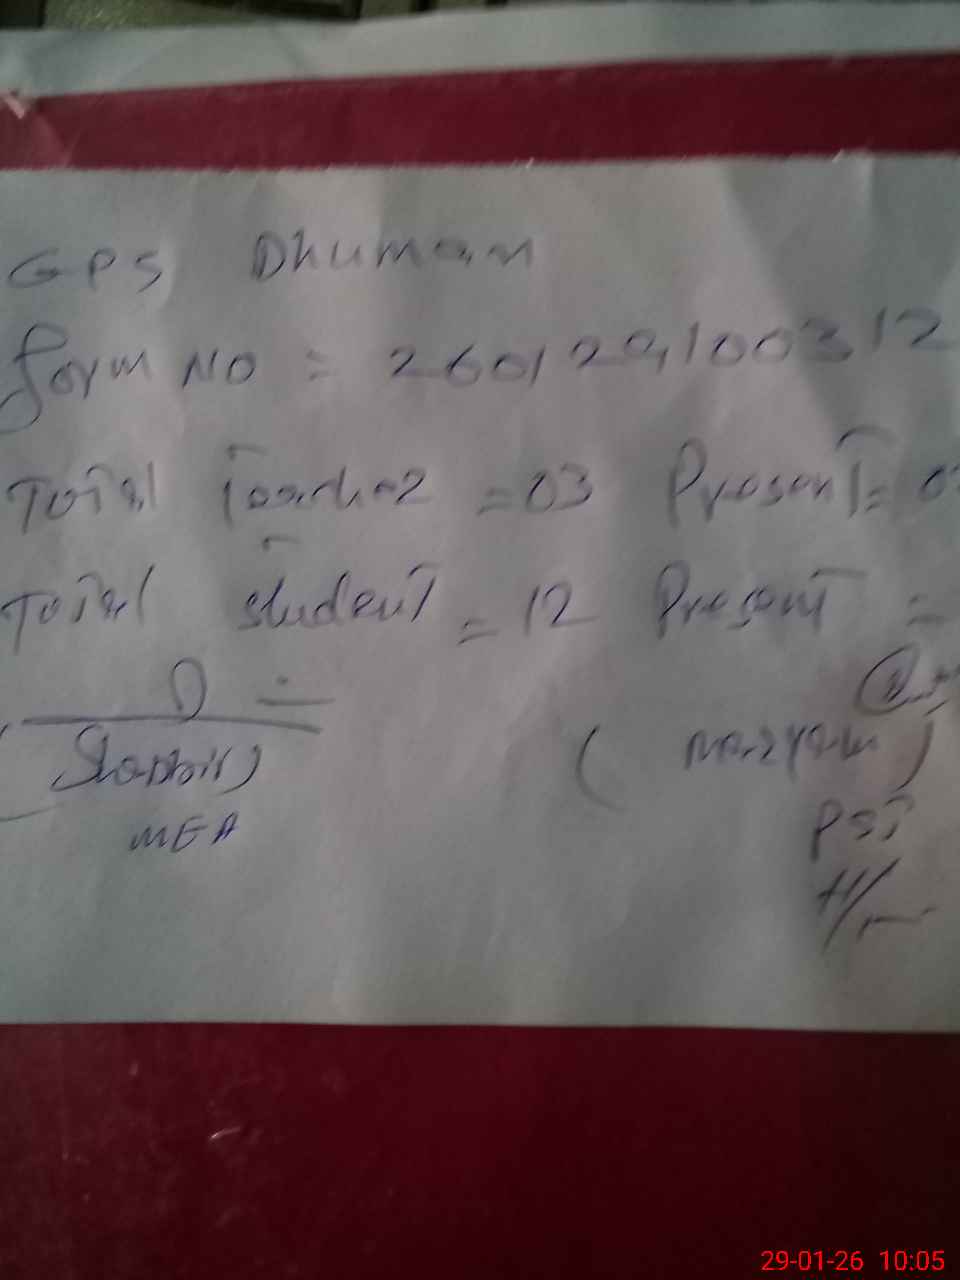 GPS Dhumam
form NO = 260129100312
Total Teacher = 03 Present = 0
Total student = 12 Present =
(Shabbir)
MEA
(Maryam)
PST
H/m
29-01-26 10:05